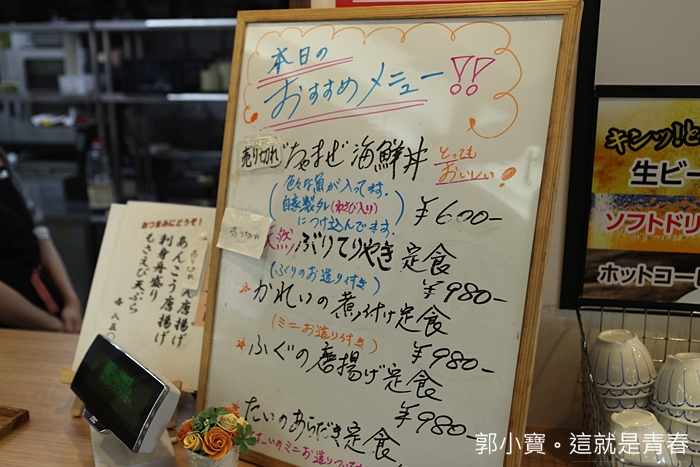 本日の
おすすめメニュー!!
売り切れ
ちゃまぜ海鮮丼 とっても
おいしい!
(色々な魚が入ってます。
自家製タレ(わさび入り)
につけ込んでます。)
¥600-
売り切れ
天然ぶりてりやき定食
(ぶりのお造り付き) ¥980-
かれいの煮付け定食
(ミニお造り付き) ¥980-
ふぐの唐揚げ定食
¥980-
たいのあらだき定食
たいのミニお造り
おつまみにどうぞ!
売り切れ
ん唐揚げ
あんこう唐揚げ
刺身舟盛り
もさえび天ぷら
各
キンッ!と
生ビー
ソフトドリ
ホットコー
郭小寶。這就是青春